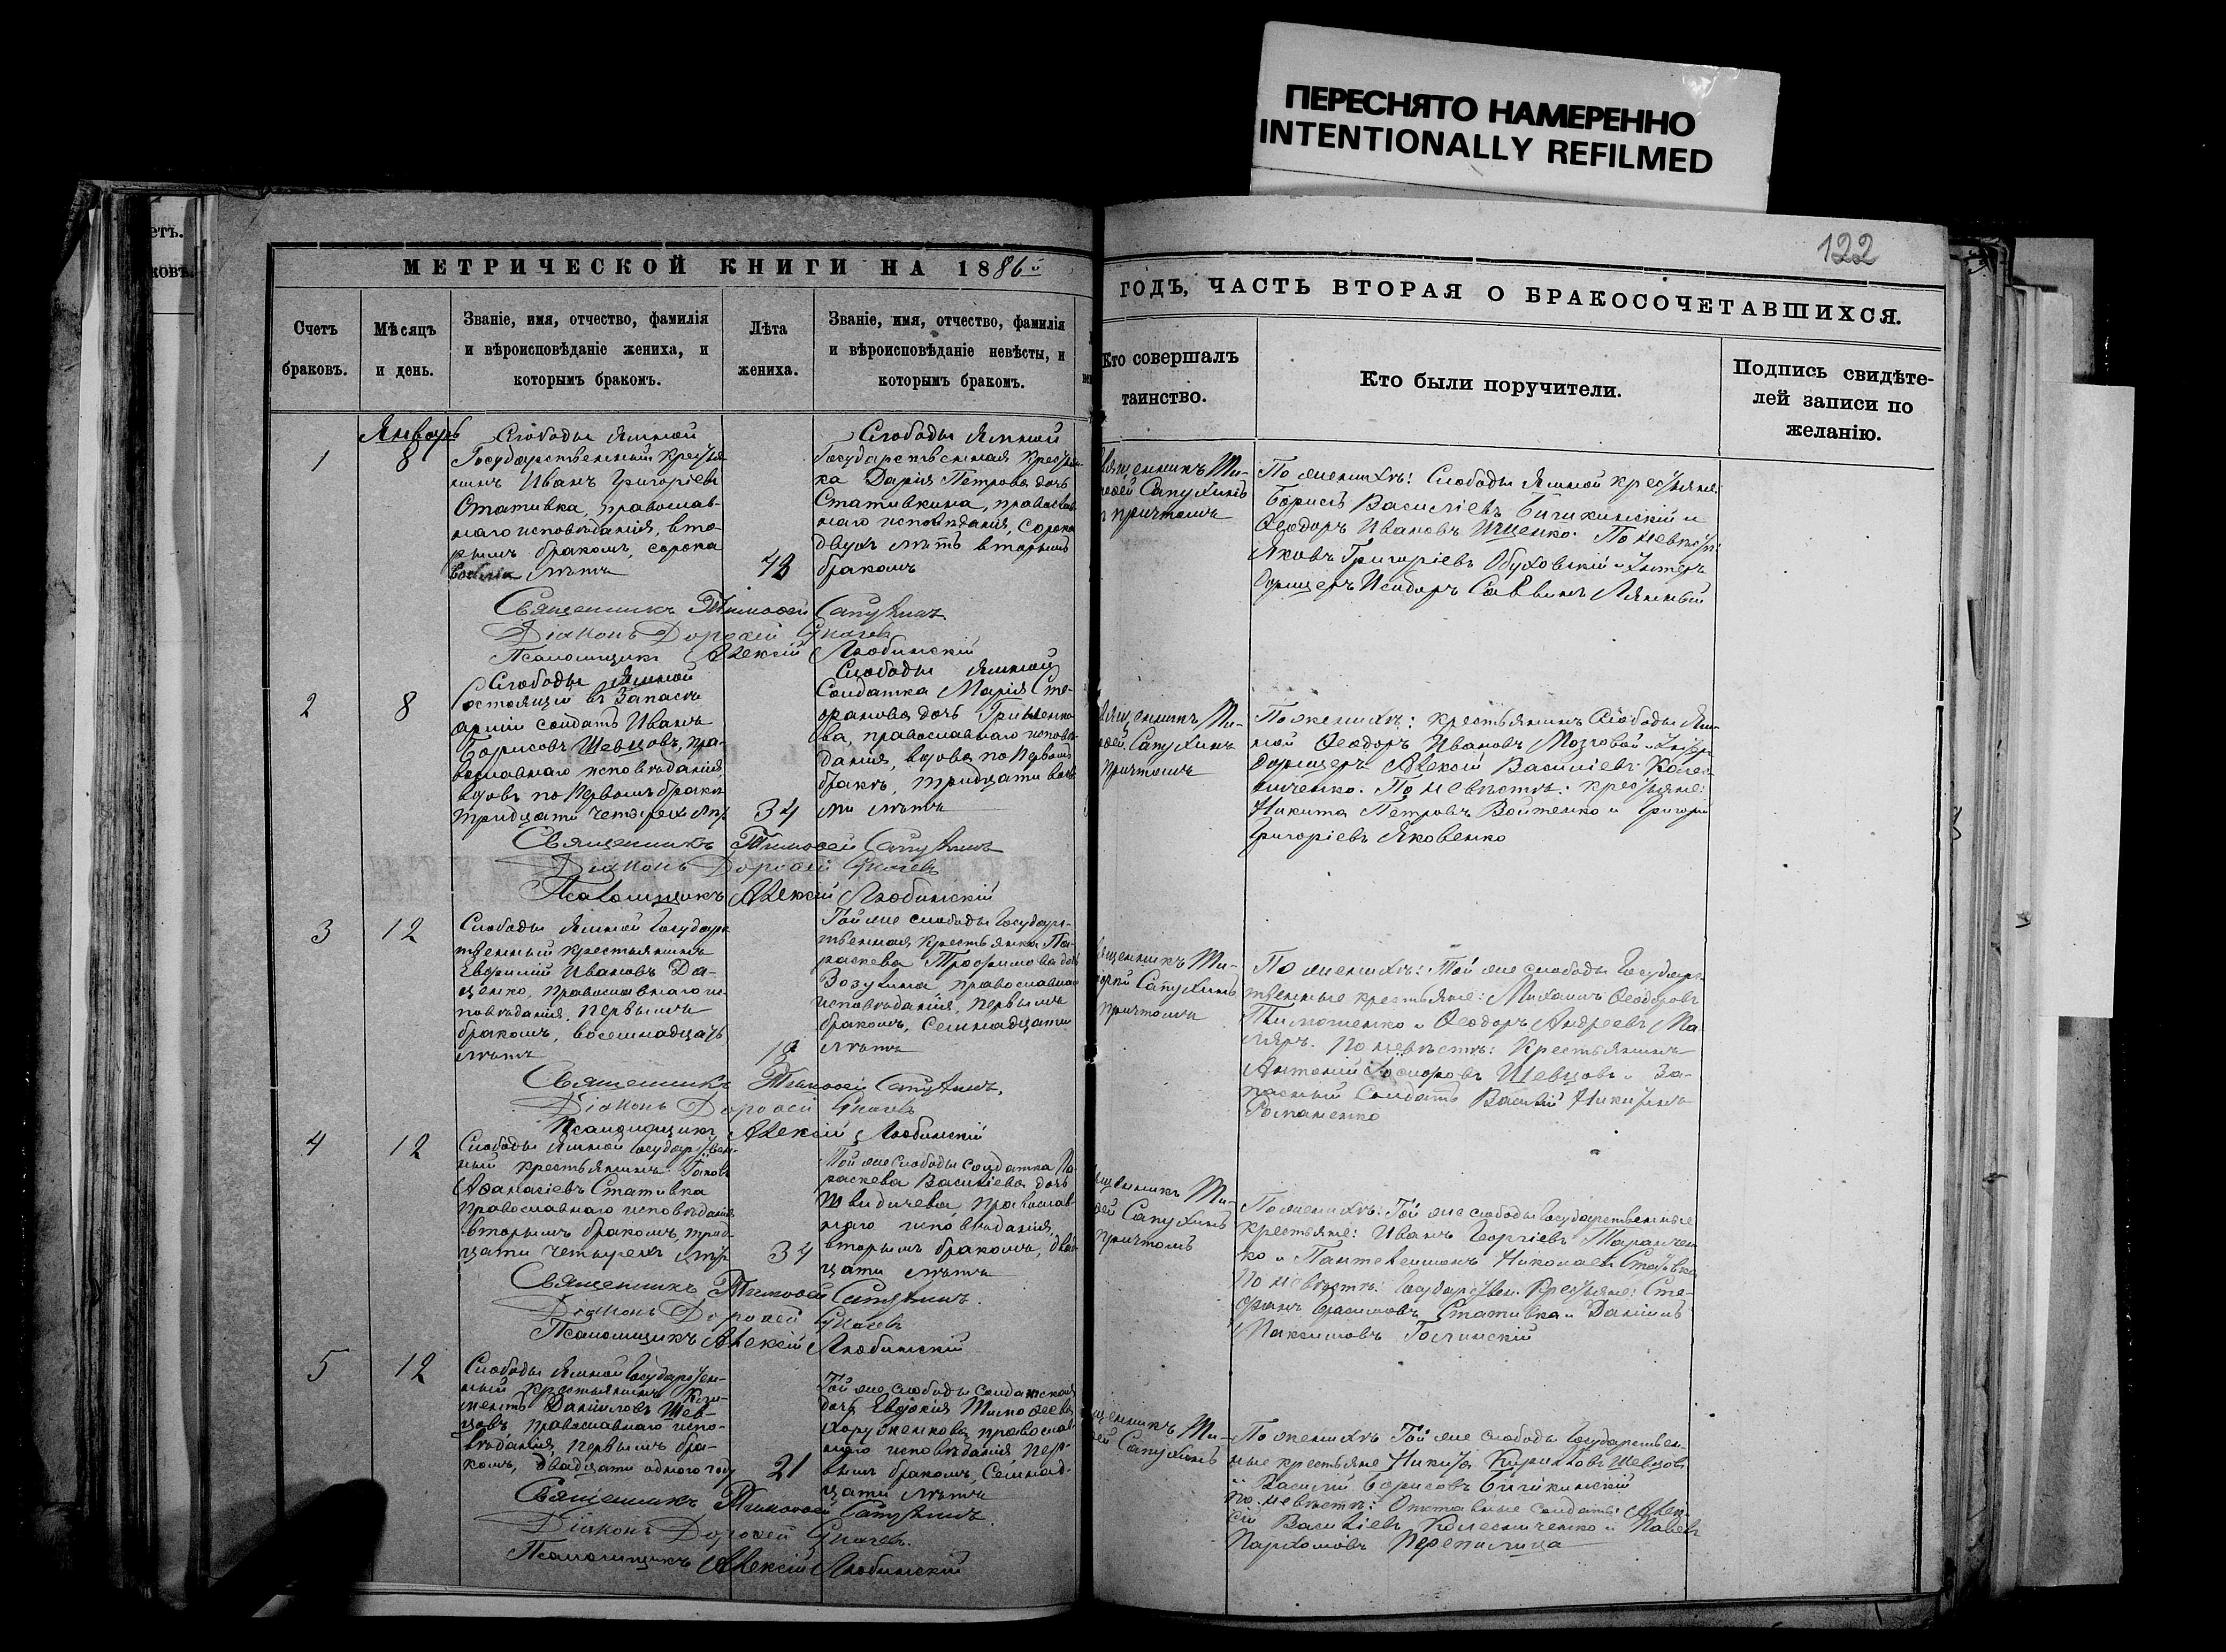 ПЕРЕСНЯТО НАМЕРЕННО
INTENTIONALLY REFILMED
122
етъ.
ковъ.
МЕТРИЧЕСКОЙ КНИГИ НА 1886й
ГОДЪ, ЧАСТЬ ВТОРАЯ О БРАКОСОЧЕТАВШИХСЯ.
Счетъ
браковъ.
Мѣсяцъ
и день.
Званіе, имя, отчество, фамилія
и вѣроисповѣданіе жениха, и
которымъ бракомъ.
Лѣта
жениха.
Званіе, имя, отчество, фамилія
и вѣроисповѣданіе невѣсты, и
которымъ бракомъ.
Кто совершалъ
таинство.
Кто были поручители.
Подпись свидѣте-
лей записи по
желанію.
1
Январь
8
Слободы Ямной
Государственный крестья
нинъ Иванъ Григоріевъ
Стативка, православ-
наго исповѣданія, вто-
рымъ бракомъ, сорока
лѣтъ
48
Слободы Ямной
Государственная крестьян
ка Дарія Петрова дочь
Стативкина, православ
наго исповѣданія, сорока
двухъ лѣтъ вторымъ
бракомъ
священникъ Ти-
моѳей Сапухинъ
съ причтомъ
По женихѣ: Слободы Ямной крестьяне:
Борисъ Василіевъ Бичихинскій и
Ѳеодоръ Ивановъ Ищенко. По невѣстѣ:
Яковъ Григоріевъ Обуховскій и Унтеръ
Офицеръ Исидоръ Саввинъ Лямный
Священникъ Тимоѳей Сапухинъ
Діаконъ Дороѳей
Псаломщикъ Алексій Любинскій
2
8
Слободы Ямной
Состоящій въ Запасѣ
арміи солдатъ Иванъ
Борисовъ Шевцовъ, пра-
вославнаго исповѣданія
вдовъ по первомъ бракѣ
тридцати четырехъ лѣтъ
34
Слободы Ямной
Солдатка Марія Сте-
фанова дочь Гришенко
ва, православнаго исповѣ-
данія, вдова по первомъ
бракѣ, тридцати вось
ми лѣтъ
священникъ Ти-
моѳей Сапухинъ
причтомъ
По женихѣ: крестьянинъ Слободы Ям-
ной Ѳеодоръ Ивановъ Мозговой и Унтеръ
Офицеръ Алексій Василіевъ Колес
ниченко. По невѣстѣ: крестьяне:
Никита Петровъ Войтенко и Григорій
Григоріевъ Яковенко
Священникъ Тимоѳей Сапухинъ
Діаконъ Дороѳей
Псаломщикъ Алексій Любинскій
3
12
Слободы Ямной Государс
твенный крестьянинъ
Евфимій Ивановъ Да-
ценко, православнаго ис-
повѣданія, первымъ
бракомъ, восемнадцать
лѣтъ
18
Той же слободы Государс-
твенная крестьянка Па-
раскева Трофимова дочь
Зозулина, православнаго
исповѣданія, первымъ
бракомъ, семнадцати
лѣтъ
священникъ Ти-
моѳей Сапухинъ
причтомъ
По женихѣ: Той же слободы Государс
твенные крестьяне: Михаилъ Ѳеодоровъ
Тимошенко и Ѳеодоръ Андреевъ Ма-
ляръ. По невѣстѣ: Крестьянинъ
Антоній Шевцовъ и За-
пасный Солдатъ Василій Никитинъ
Романенко
Священникъ Тимоѳей Сапухинъ.
Діаконъ Дороѳей
Псаломщикъ Алексій Любинскій
4
12
Слободы Ямной Государствен-
ный крестьянинъ Іаковъ
Аѳанасіевъ Стативка
православнаго исповѣданія
вторымъ бракомъ, трид-
цати четырехъ лѣтъ
34
Той же Слободы солдатка Па
раскева Василіева дочь
православ-
наго исповѣданія,
вторымъ бракомъ, двад
цати лѣтъ
священникъ Ти-
моѳей Сапухинъ
причтомъ
По женихѣ: Той же слободы Государственные
крестьяне: Иванъ Георгіевъ Таранчен
ко и Пантелеимонъ Николаевъ Стативка
По невѣстѣ: Государствен. Крестьяне: Сте-
фанъ Герасимовъ Стативка и Даніилъ
Максимовъ
Священникъ Тимоѳей Сапухинъ.
Діаконъ Дороѳей
Псаломщикъ Алексій Любинскій
5
12
Слободы Ямной Государствен-
ный крестьянинъ Кли-
ментъ Даніиловъ Шев-
цовъ, православнаго испо-
вѣданія, первымъ бра-
комъ, двадцати одного году
21
Той же слободы солдатская
дочь Евдокія Тимоѳеева
Хоруженкова, православ-
наго исповѣданія пер-
вымъ бракомъ, семнад-
цати лѣтъ
священникъ Ти-
моѳей Сапухинъ
По женихѣ Той же слободы Государствен-
ные крестьяне Никита Кирилловъ Шевцовъ
и Василій Борисовъ Бичихинскій
По невѣстѣ: Отставные солдаты: Алек-
сій Василіевъ Колесниченко и Павелъ
Пархомовъ Перепилица
Священникъ Тимоѳей Сапухинъ.
Діаконъ Дороѳей
Псаломщикъ Алексій Любинскій